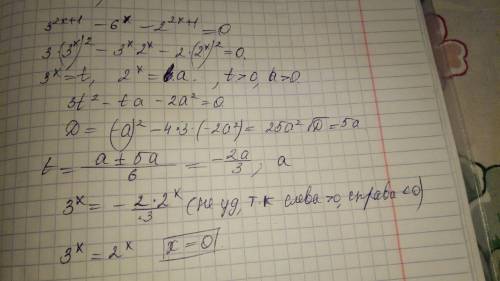 3^{2x+1} - 6^x - 2^{2x+1} = 0
3·(3^x)^2 - 3^x 2^x - 2·(2^x)^2 = 0.
3^x = t, 2^x = a. , t>0, a>0
3t^2 - ta - 2a^2 = 0
D = (-a)^2 - 4·3·(-2a^2) = 25a^2 √D = 5a
t = \frac{a ± 5a}{6} = \frac{-2a}{3}, a
3^x = - \frac{2·2^x}{3} (не уд, т.к слева >0, справа <0)
3^x = 2^x x = 0